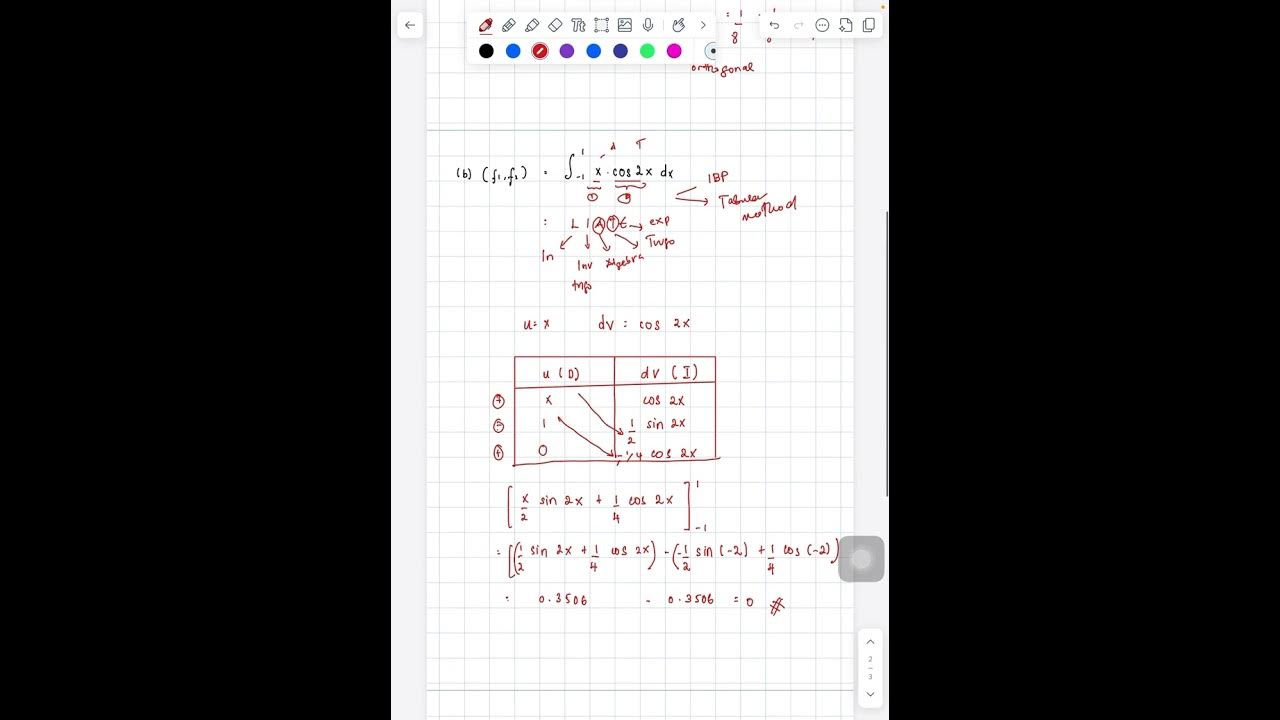 Tt
= 1/8
orthogonal
A T
(b) (f₁,f₂) = ∫₋₁¹ x · cos 2x dx
① ②
IBP
Tabular method
: L I A T E → exp
ln Inv trigo Algebra Trigo
u = x dv = cos 2x
u (D) dv (I)
x cos 2x
1 1/2 sin 2x
0 -1/4 cos 2x
[x/2 sin 2x + 1/4 cos 2x]₋₁¹
= [(1/2 sin 2x + 1/4 cos 2x) - (-1/2 sin (-2) + 1/4 cos (-2))
: 0.3506 - 0.3506 = 0 #
2
3